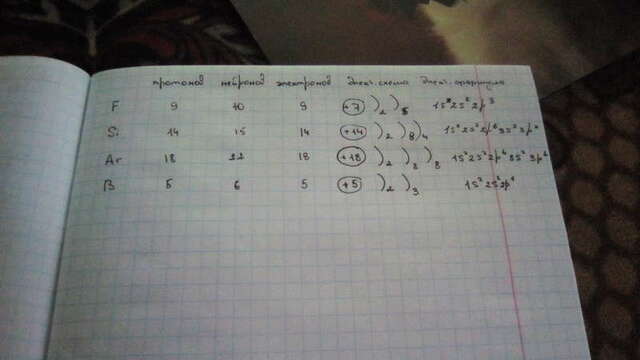 протонов нейронов электронов элект. схема элект. формула
F 9 10 9 +7 )2 )5 1s²2s²2p³
Si 14 15 14 +14 )2 )8 )4 1s²2s²2p⁶3s²3p²
Ar 18 22 18 +18 )2 )8 )8 1s²2s²2p⁶3s²3p⁶
B 5 6 5 +5 )2 )3 1s²2s²2p¹